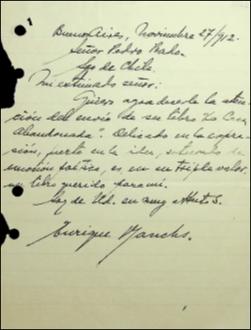 Buenos Aires, Noviembre 27/912.
Señor Pedro Prado.
Sgo de Chile.
Mi estimado señor:
Quiero agradecerle la aten-
ción del envío de su libro "La Casa
Abandonada". Delicado en la expre-
sión, fuerte en la idea, de
emoción poética, es, en un triple valor,
un libro querido para mí.
Soy de Ud. su muy attento S.
Enrique Banchs.